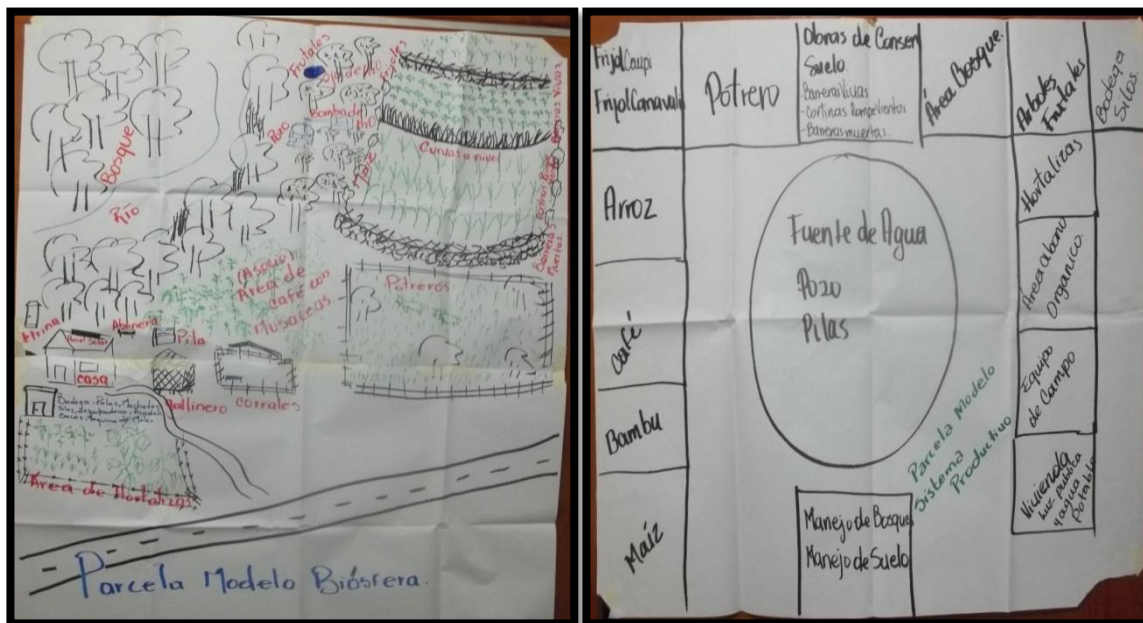 Frutales
Ojo de Ho
Frijoles
Bomba de
Ho
Pozo
Bosque
Maíz
Curvas a nivel
Barreras Vivas
Río
Barreras
Muertas
(Asocio)
Área de
café con
Musaceas
Potreros
Letrina
Abonera
Pila
Panel Solar
casa
Gallinero
Corrales
Bodega. Palas, Machetes
Silos,
Sacos, Maquina de Moler
Área de Hortalizas
Parcela Modelo Biósfera.
Frijol Caupi
Frijol Canavalia
Potrero
Obras de Conser
Suelo
-Barreras Vivas
-Cortinas Rompevientos
-Barreras muertas.
Área Bosque.
Arboles
Frutales
Bodega
Silos
Arroz
Café
Bambu
Maíz
Fuente de Agua
Pozo
Pilas
Hortalizas
Área abono
Organico.
Equipo
de Campo
Vivienda
Luz publica
y agua
Potable
Parcela Modelo
Sistema
Productivo
Manejo de Bosque
Manejo de Suelo